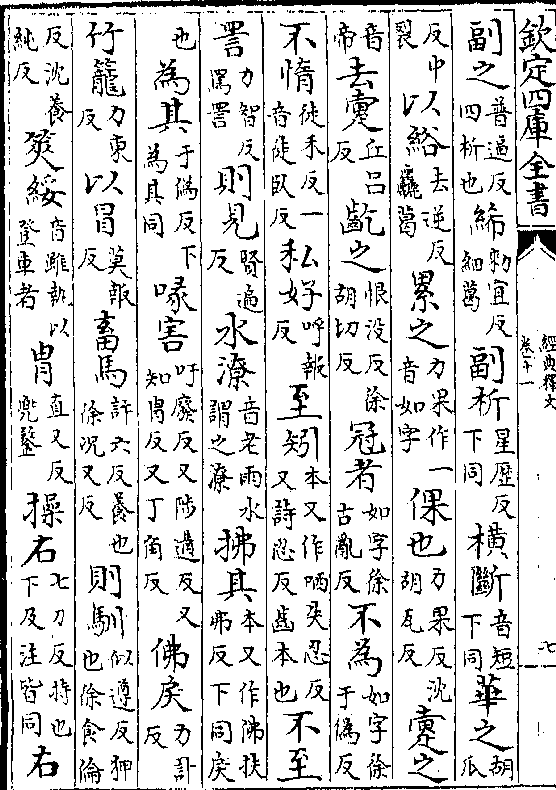 欽定四庫全書
經典釋文
卷十一
七
副之普逼反四析也絺勑宜反細葛副析星歷反下同橫斷音短下同華之胡瓜
反中裂以綌去逆反麤葛累之力果反一音如字倮也力果反沈胡瓦反疐之
音帝去疐丘呂反齕之恨没反徐胡切反冠者如字徐古亂反不為如字徐于偽反
不惰徒禾反一音徒臥反私好呼報反至矧本又作哂矣忍反又詩忍反齒本也不至
詈力智反罵詈則見賢遍反水潦音老雨水謂之潦拂其本又作佛扶弗反下同戾
也為其于偽反下為其同喙害吁廢反又陟遘反又知冑反又丁角反佛戾力計反
竹籠力東反以冒莫報反畜馬許六反養也徐况又反則馴似遵反狎也徐食倫
反沈養純反筴綏音雖執以登車者冑直又反兜鍪操右七刀反持也下及注皆同右